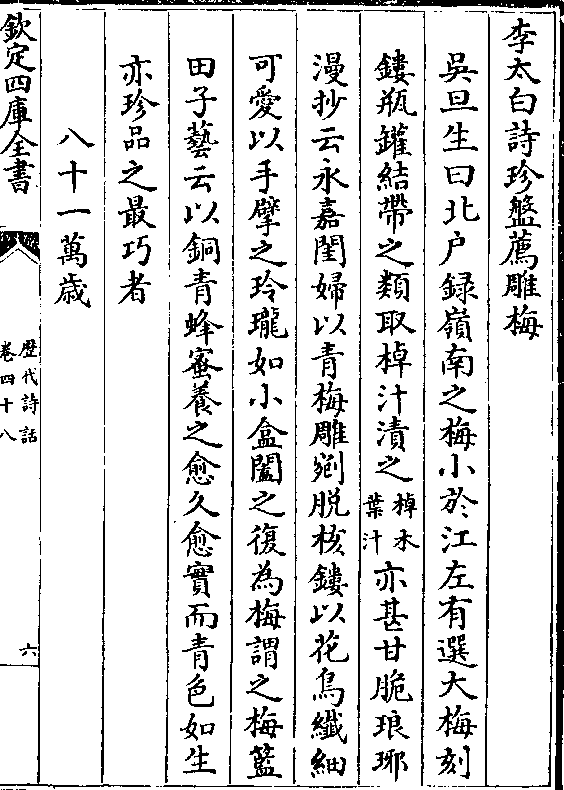 李太白詩珍盤薦雕梅
吳旦生曰北户録嶺南之梅小於江左有選大梅刻
鏤瓶罐結帶之類取棹汁漬之棹木葉汁亦甚甘脆琅琊
漫抄云永嘉閨婦以青梅雕剜脱核鏤以花鳥纖細
可愛以手擘之玲瓏如小盒闔之復為梅謂之梅籃
田子藝云以銅青蜂蜜養之愈久愈實而青色如生
亦珍品之最巧者
八十一萬歲
欽定四庫全書
歴代詩話
卷四十八
六